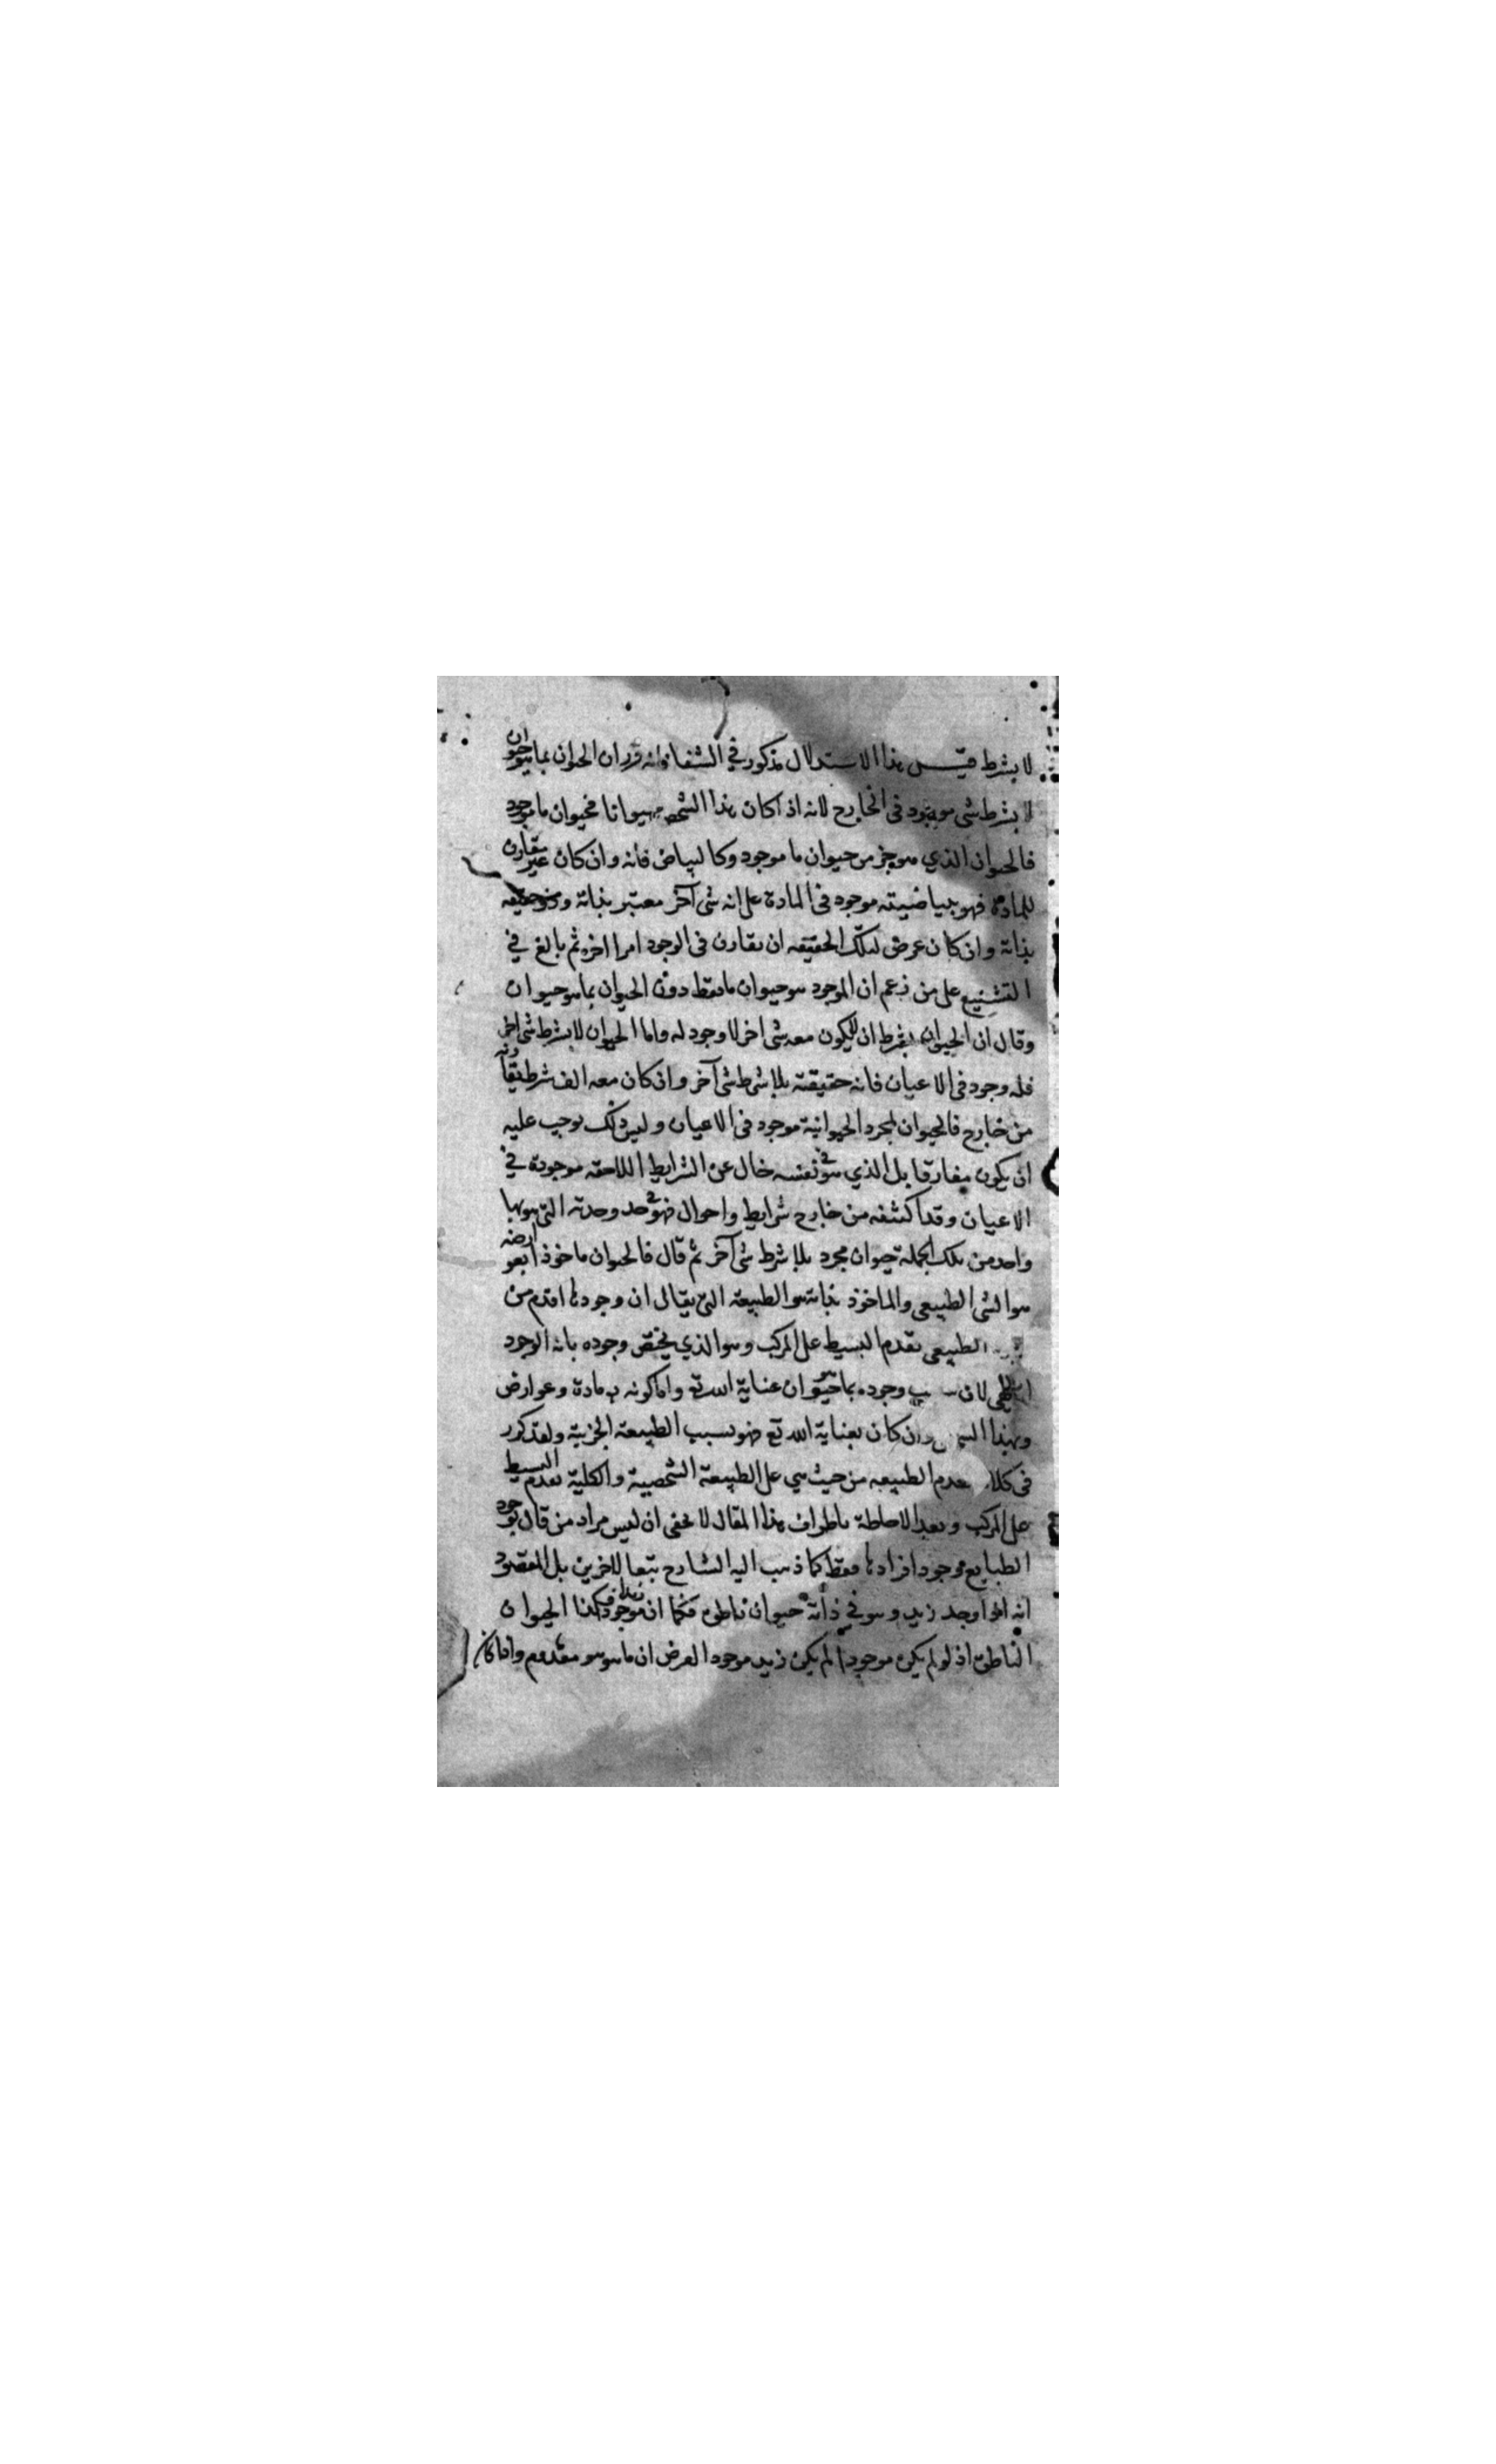 لا بشرط قيس هذا الاستدلال مذكور في الشفا فانه قرر ان الحيوان بما هو حيوان
لا بشرط شى موجود فى الخارج لانه اذا كان هذا الشخص حيوانا فحيوان ما موجود
فالحيوان الذي هو جزء من حيوان ما موجود وكالبياض فانه وان كان غير مقارن
للمادة فهو ببياضيته موجود فى المادة على انه شى آخر معتبر بذاته وذو حقيقه
بذاته وان كان عرض لتلك الحقيقه ان تقارن فى الوجود امرا اخر ثم بالغ في
التشنيع على من زعم ان الموجود هو حيوان ما فقط دون الحيوان بما هو حيوان
وقال ان الحيوان بشرط ان لا يكون معه شى اخر لا وجود له واما الحيوان لا بشرط شى اخر
فله وجود فى الاعيان فانه حقيقته بلا شرط شى آخر وان كان معه الف شرط يقارنه
من خارج فالحيوان لمجرد الحيوانية موجود فى الاعيان وليس ذلك يوجب عليه
ان يكون مفارقا بل الذي هو فى نفسه خال عن الشرايط اللاحقه موجودة في
الاعيان وقد اكتنفه من خارج شرايط واحوال فهو فى حد وحدته التي هو بها
واحد من تلك الجملة حيوان مجرد بلا شرط شى آخر ثم قال فالحيوان ماخوذا بعوارضه
هو الشى الطبيعى والماخوذ بذاته هو الطبيعة التي يقال ان وجودها اقدم من
الطبيعى تقدم البسيط على المركب وهو الذي يختص وجوده بانه الوجود
لان وجوده بما هو حيوان عناية الله تع واما كونه مع مادة وعوارض
وهذا وان كان بعناية الله تع فهو بسبب الطبيعة الجزية ولقد كرر
فى كلا تقدم الطبيعه من حيث هي على الطبيعة الشخصية والكلية تقدم البسيط
على المركب وبعد الاحاطة باطراف هذا المقال لا يخفى ان ليس مراد من قال بوجود
الطبايع موجود افرادها فقط كما ذهب اليه الشارح تبعا للاخرين بل المقصود
انه اذا وجد زيد وهو في ذاته حيوان ناطق فكما ان زيدا موجود فكذا الحيوان
الناطق اذ لو لم يكن موجودا لم يكن زيد موجودا لفرض ان ما هو هو معدوم واذا كان